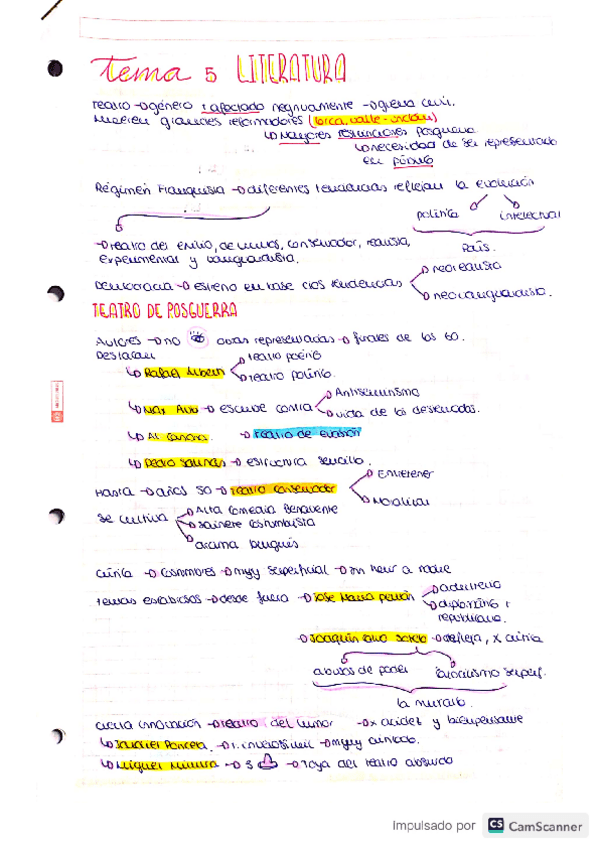 tema 5 LITERATURA
teatro → género + afectado negativamente → guerra civil.
Mueren grandes reformadores (lorca, valle-inclán)
↳ Mayores restricciones posguerra
↳ necesidad de ser representado
en público
Régimen Franquista → diferentes tendencias reflejan la evolución
política intelectual
País.
→ teatro del exilio, de humor, conservador, realista,
experimental y vanguardista.
Democracia → estreno en base a las tendencias
→ neorealista
→ neovanguardista.
TEATRO DE POSGUERRA
Autores → no obras representadas → finales de los 60.
Destacan
↳ Rafael Alberti → teatro poético
→ teatro político.
↳ Max Aub → escribe contra → Antisemitismo
→ vida de los desterrados.
↳ Al Casona → teatro de evasión
↳ Pedro Salinas → estructura sencilla.
Hasta → años 50 → teatro conservador → Entretener
→ Moralizar
Se cultiva → Alta comedia Benavente
→ sainete costumbista
→ drama burgués
crítica → costumbres → muy superficial → sin herir a nadie
temas → desde fuera → José María Pemán → adulterio
→ republicano.
→ Joaquín Calvo Sotelo → refleja, x crítica
abusos de poder
la muralla.
cierta innovación → teatro del humor → x acidez y
↳ Jardiel Poncela. → t. inverosímil → muy criticado.
↳ Miguel Mihura → 3 → Joya del teatro absurdo
Impulsado por CS CamScanner